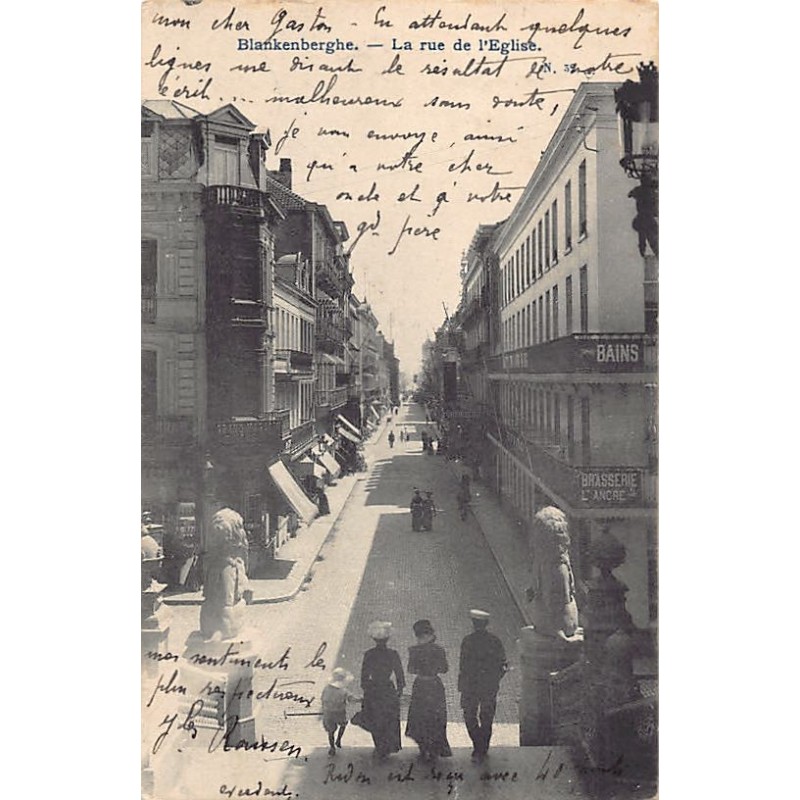 mon cher Gaston – En attendant quelques
Blankenberghe. — La rue de l'Eglise.
lignes me disant le résultat de votre
N.
écrit... malheureux sans doute,
je vous envoye, ainsi
qu'a votre cher
oncle et à votre
gd père
BAINS
BRASSERIE
L'ANCRE
mes sentiments les
plus respectueux
Roussen.
Rudon est reçu avec 40 points
excédent.